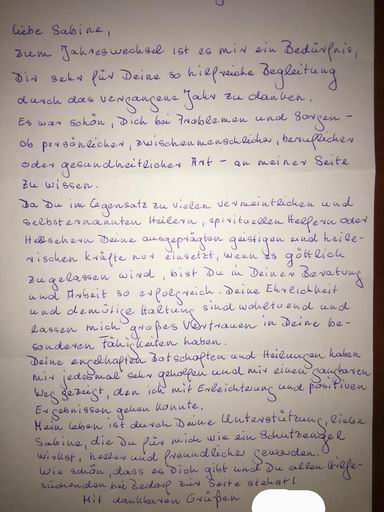 liebe Sabine,
zum Jahreswechsel ist es mir ein Bedürfnis,
Dir sehr für Deine so hilfreiche Begleitung
durch das vergangene Jahr zu danken.
Es war schön, Dich bei Problemen und Sorgen -
ob persönlicher, zwischenmenschlicher, beruflicher
oder gesundheitlicher Art - an meiner Seite
zu wissen.
Da Du im Gegensatz zu vielen vermeintlichen und
selbsternannten Heilern, spirituellen Helfern oder
Hellsehern Deine ausgeprägten geistigen und heile-
rischen Kräfte nur einsetzt, wenn es göttlich
zugelassen wird, bist Du in Deiner Beratung
und Arbeit so erfolgreich. Deine Ehrlichkeit
und demütige Haltung sind wohltuend und
lassen mich großes Vertrauen in Deine be-
sonderen Fähigkeiten haben.
Deine engelhaften Botschaften und Heilungen haben
mir jedesmal sehr geholfen und mir einen gangbaren
Weg gezeigt, den ich mit Erleichterung und positiven
Ergebnissen gehen konnte.
Mein Leben ist durch Deine Unterstützung, liebe
Sabine, die Du für mich wie ein Schutzengel
wirkst, heller und freundlicher geworden.
Wie schön, dass es Dich gibt und Du allen Hilfe-
suchenden bei Bedarf zur Seite stehst!
Mit dankbaren Grüßen